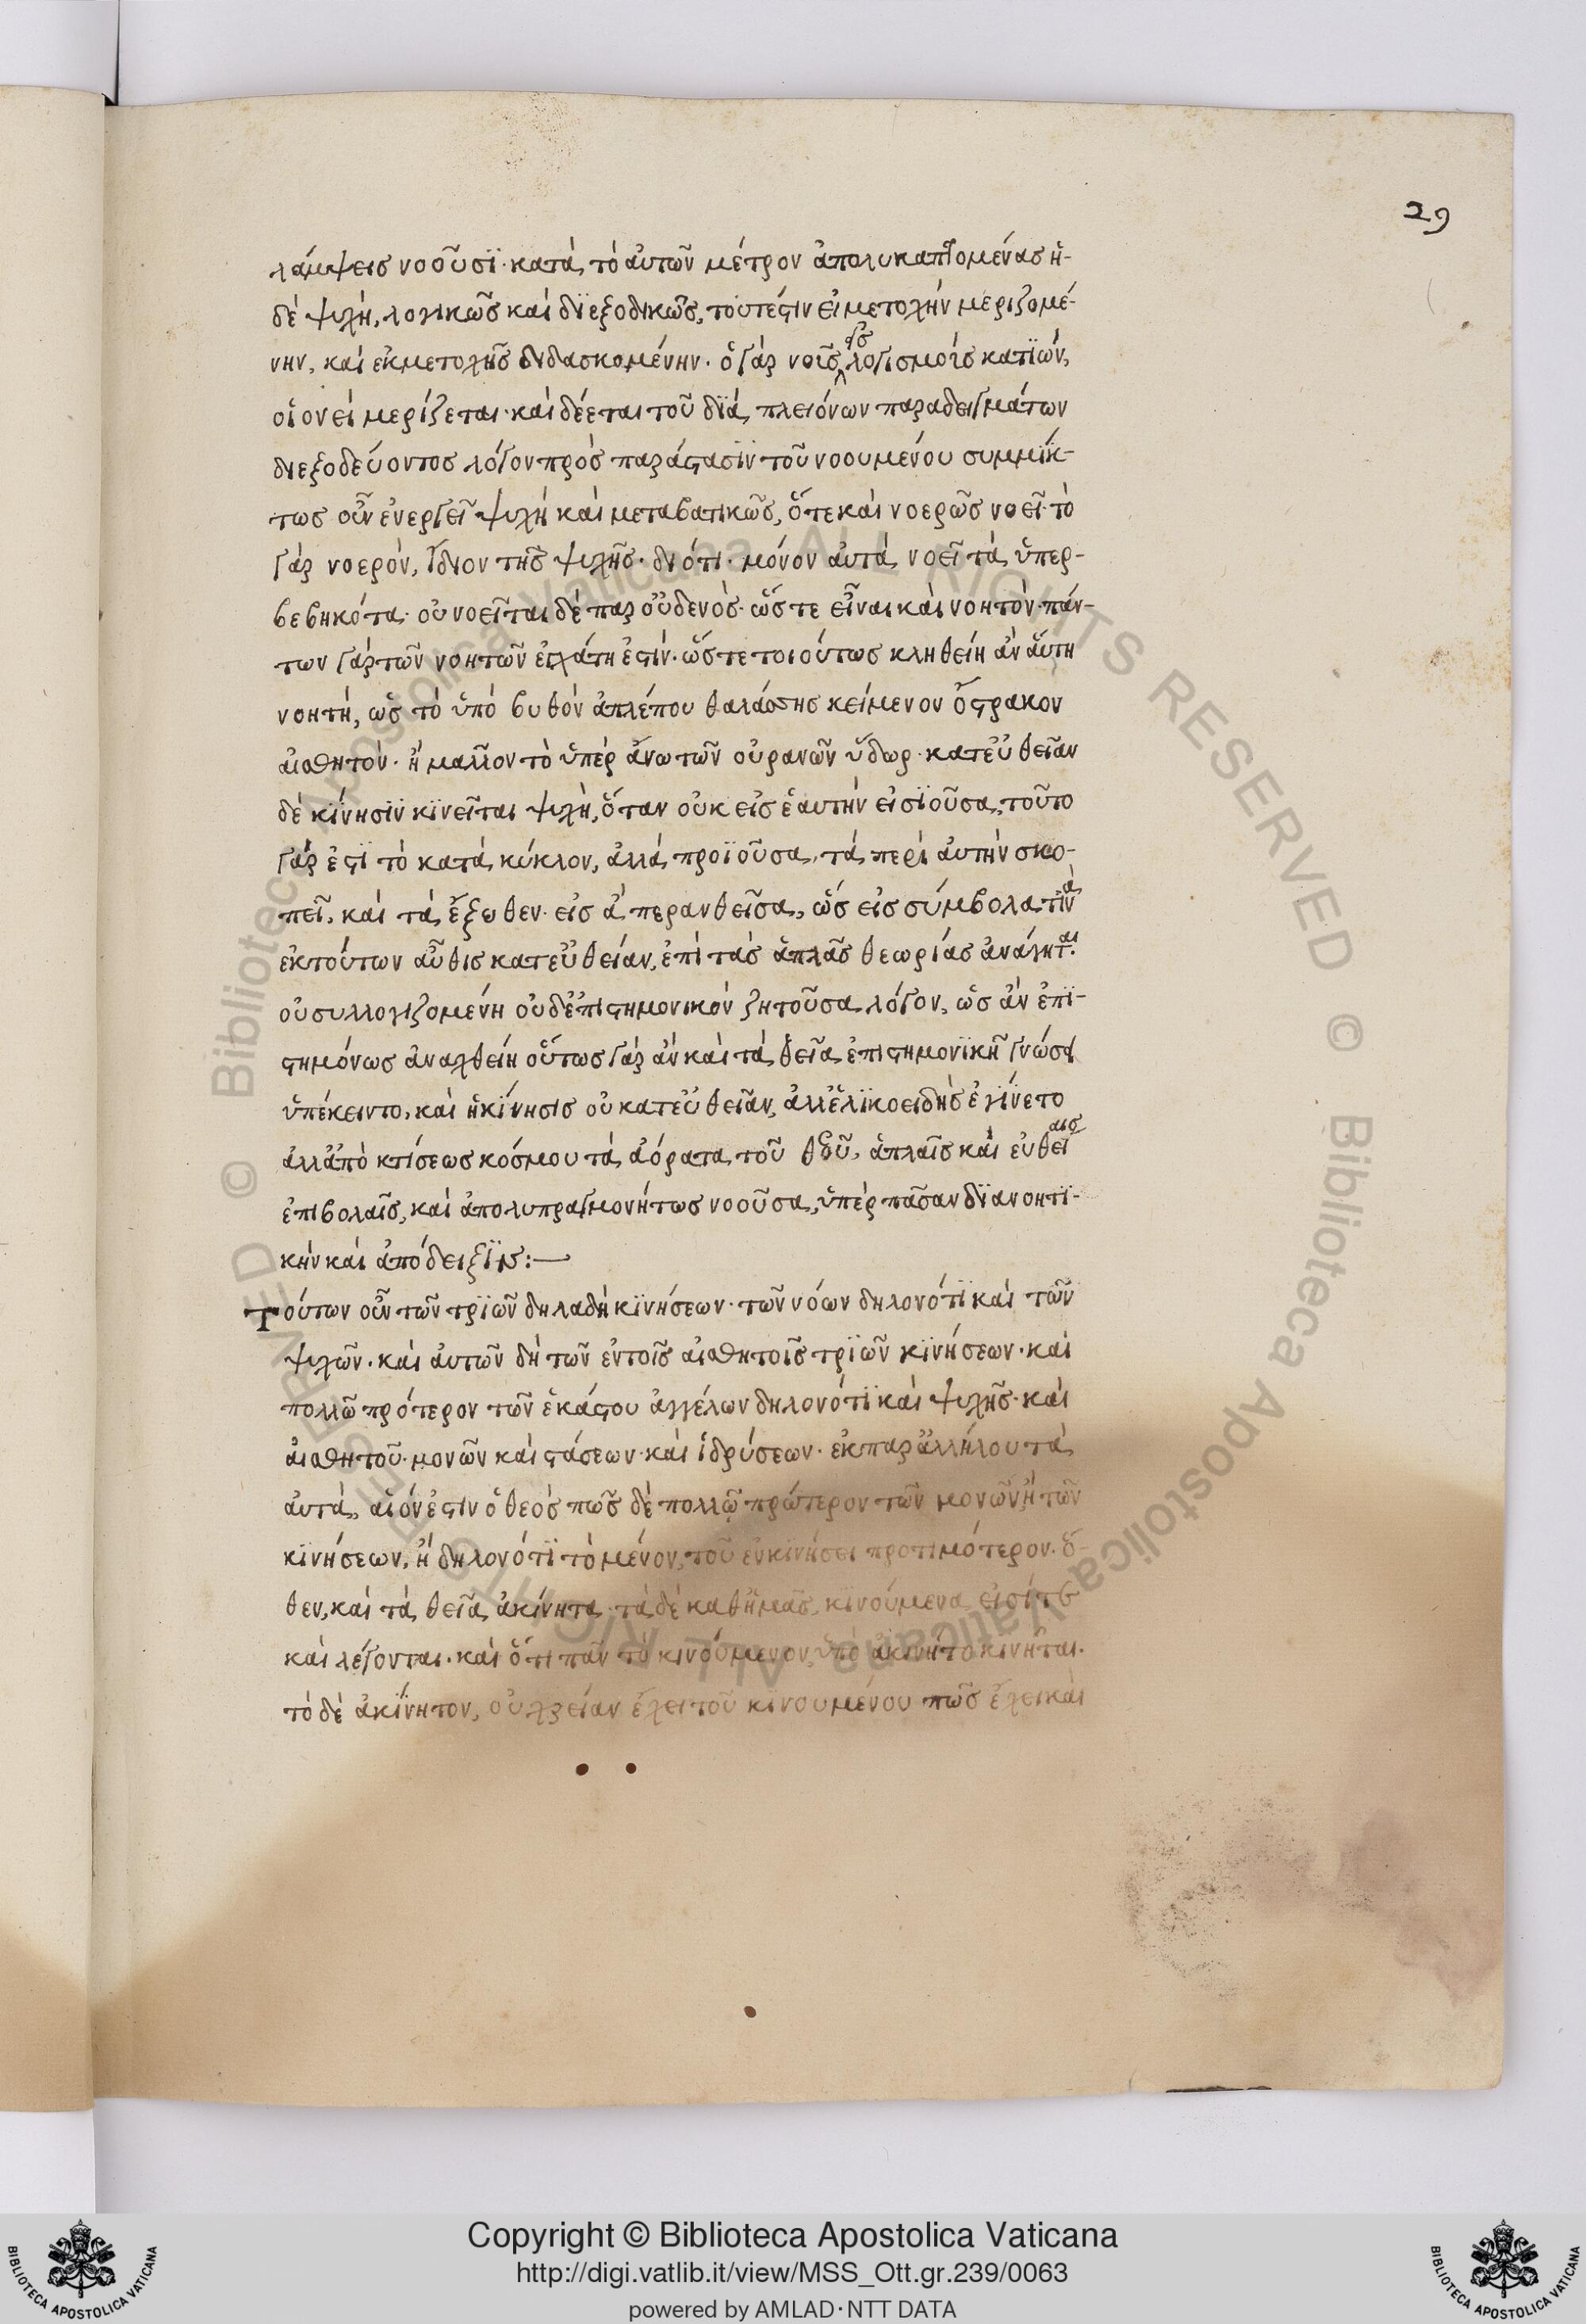 29
λάμψεις νοοῦσϊ· κατὰ τὸ αὐτῶν μέτρον ἀπολυκαπ ομένας ἡ-
δὲ ψυχὴ, λογικῶς καὶ δϊεξοδικῶς, τουτέστιν εἰμετοχὴν μεριζομέ-
νην, καὶ ἐκμετοχῆς διδασκομένην. ὁ γὰρ νοῖς εἰς λογισμοὺς κατϊὼν,
οἱονεὶ μερίζεται· καὶ δέεται τοῦ δϊὰ πλειόνων παραδειγμάτων
διεξοδεύοντος λόγον πρὸς παράστασϊν τοῦ νοουμένου συμμϊκ-
τως οὖν ἐνεργεῖ ψυχὴ καὶ μεταβατικῶς, ὅτε καὶ νοερῶς νοεῖ· τὸ
γὰρ νοερὸν, ἴδιον τῆς ψυχῆς· διότι· μόνον αὐτὰ νοεῖ τὰ ὑπερ-
βεβηκότα· οὐ νοεῖται δὲ παρ οὐδενὸς· ὥστε εἶναι καὶ νοητὸν· πάν-
των γὰρ τῶν νοητῶν ἐσχάτη ἐστὶν· ὥστε τοιούτως κληθείη ἂν αὕτη
νοητὴ, ὡς τὸ ὑπὸ βυθὸν ἀπλέπου θαλάσσης κείμενον ὄστρακον
αἰσθητὸν· ἢ μᾶλλον τὸ ὑπὲρ ἄνω τῶν οὐρανῶν ὕδωρ· κατεὐθεῖαν
δὲ κϊνησϊν κϊνεῖται ψυχὴ, ὅταν οὐκ εἰς ἑαυτὴν εἰσϊοῦσα, τοῦτο
γὰρ ἐστϊ τὸ κατὰ κύκλον, ἀλλὰ προϊοῦσα, τὰ περὶ αὐτὴν σκο-
πεῖ, καὶ τὰ ἔξωθεν· εἰς ἃ περανθεῖσα, ὡς εἰς σύμβολα τινὰ
ἐκτούτων αὖθις κατεὐθείαν, ἐπὶ τὰς ἁπλᾶς θεωρίας ἀνάγηται.
οὐ συλλογιζομένη οὐδ ἐπιστημονικὸν ζητοῦσα λόγον, ὡς ἂν ἐπϊ-
στημόνως ἀναχθείη οὕτως γὰρ ἂν καὶ τὰ θεῖα ἐπιστημονϊκῆ γνώσει
ὑπέκειντο, καὶ ἡ κίνησις οὐ κατεὐθεῖαν, ἀλλ ἑλϊκοειδὴς ἐγίνετο
ἀλλ ἀπὸ κτίσεως κόσμου τὰ ἀόρατα τοῦ θεοῦ, ἁπλαῖς καὶ εὐθείαις
ἐπιβολαῖς, καὶ ἀπολυπραγμονήτως νοοῦσα, ὑπὲρ πᾶσαν δϊανοητϊ-
κὴν καὶ ἀπόδειξϊν:—
Τούτων οὖν τῶν τρϊῶν δηλαδὴ κϊνήσεων· τῶν νόων δηλονότϊ καὶ τῶν
ψυχῶν· καὶ αὐτῶν δὴ τῶν ἐντοῖς αἰσθητοῖς τρϊῶν κϊνήσεων· καὶ
πολλῶ πρότερον τῶν ἑκάστου ἀγγέλων δηλονότϊ καὶ ψυχῆς· καὶ
αἰσθητοῦ· μονῶν καὶ στάσεων· καὶ ἱδρύσεων· ἐκπαρ ἀλλήλου τὰ
αὐτὰ, αἰόν ἐστιν ὁ θεὸς πῶς δὲ πολλῶ πρώτερον τῶν μονῶν, ἢ τῶν
κϊνήσεων, ἢ δηλονότϊ τὸ μένον, τοῦ ἐνκϊνήσει προτιμότερον· ὅ-
θεν, καὶ τὰ θεῖα ἀκίνητα· τὰ δὲ καθ ἡμᾶς, κϊνούμενα εἰσίτε
καὶ λέγονται· καὶ ὅτι πᾶν τὸ κινούμενον, ὑπὸ ἀκινήτο κινῆται·
τὸ δὲ ἀκϊνητον, οὐ χρείαν ἔχει τοῦ κϊνουμένου πῶς ἔχει καὶ
Copyright © Biblioteca Apostolica Vaticana
http://digi.vatlib.it/view/MSS_Ott.gr.239/0063
powered by AMLAD·NTT DATA
BIBLIOTECA APOSTOLICA VATICANA
BIBLIOTECA APOSTOLICA VATICANA
© Biblioteca Apostolica Vaticana ALL RIGHTS RESERVED © Biblioteca Apostolica Vaticana ALL RIGHTS RESERVED